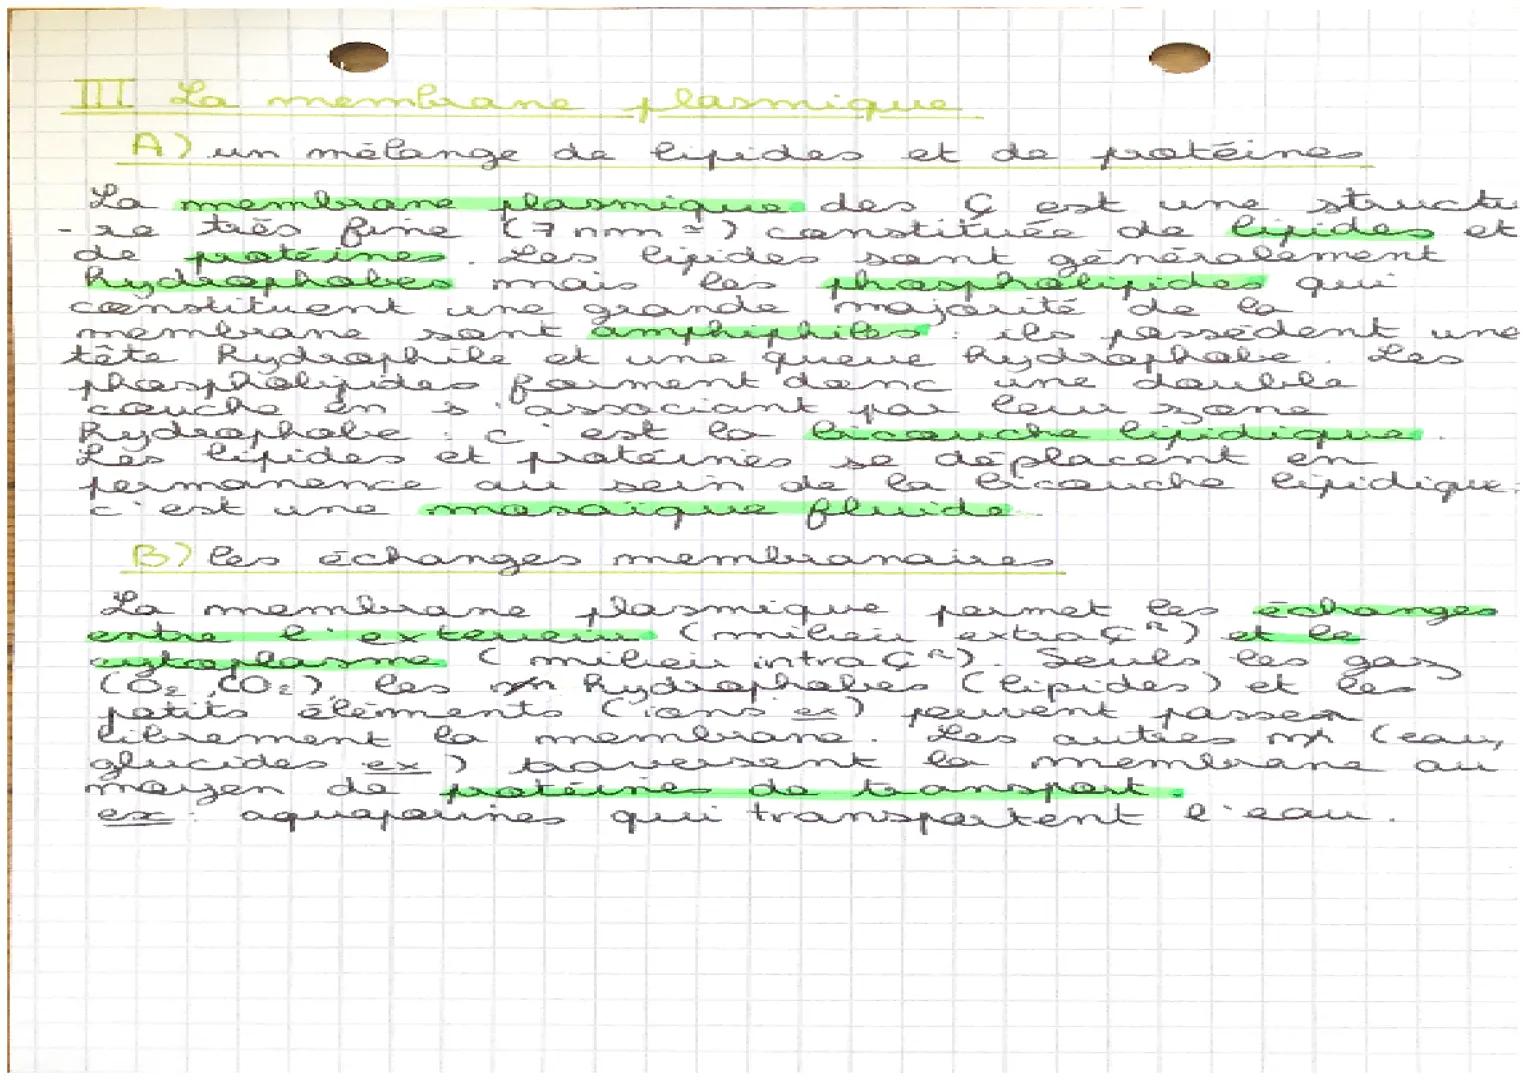 III La membrane plasmique
A) un mélange de lipides et de protéines
La membrane plasmique des Ç est une structu
-re très fine (7 nm ≃) constituée de lipides et
de protéines. Les lipides sont généralement
hydrophobes mais les phospholipides qui
constituent une grande majorité de la
membrane sont amphiphiles : ils possèdent une
tête hydrophile et une queue hydrophobe. Les
phospholipides forment donc une double
couche en s'associant par leur zone
hydrophobe : c'est la bicouche lipidique.
Les lipides et protéines se déplacent en
permanence au sein de la bicouche lipidique :
c'est une mosaïque fluide.
B) les échanges membranaires
La membrane plasmique permet les échanges
entre l'exterieur (milieu extra Ç^R) et le
cytoplasme (milieu intra Ç^R). Seuls les gaz
(O₂, CO₂), les hydrophobes (lipides) et les
petits éléments (ions ex) peuvent passer
librement la membrane. Les autres (eau,
glucides ex) traversent la membrane au
moyen de protéines de transport.
ex : aquaporines qui transportent l'eau.